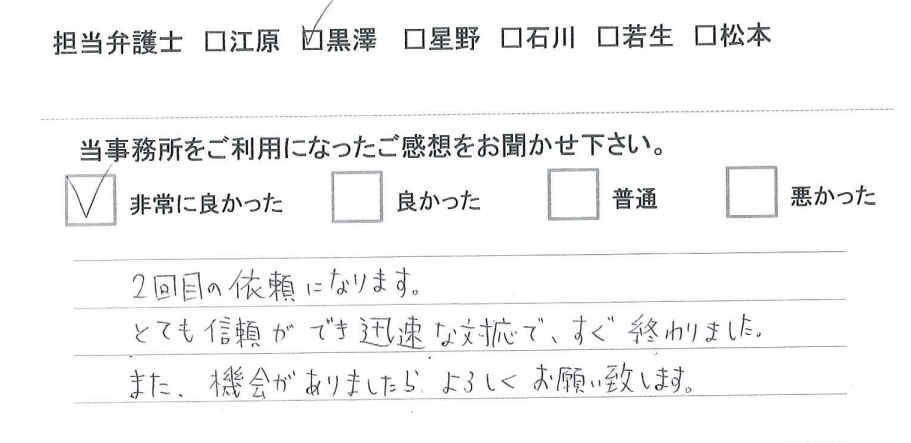 担当弁護士 □江原 ☑黒澤 □星野 □石川 □若生 □松本
当事務所をご利用になったご感想をお聞かせ下さい。
☑ 非常に良かった □ 良かった □ 普通 □ 悪かった
2回目の依頼になります。
とても信頼ができ迅速な対応で、すぐ終わりました。
また、機会がありましたらよろしくお願い致します。